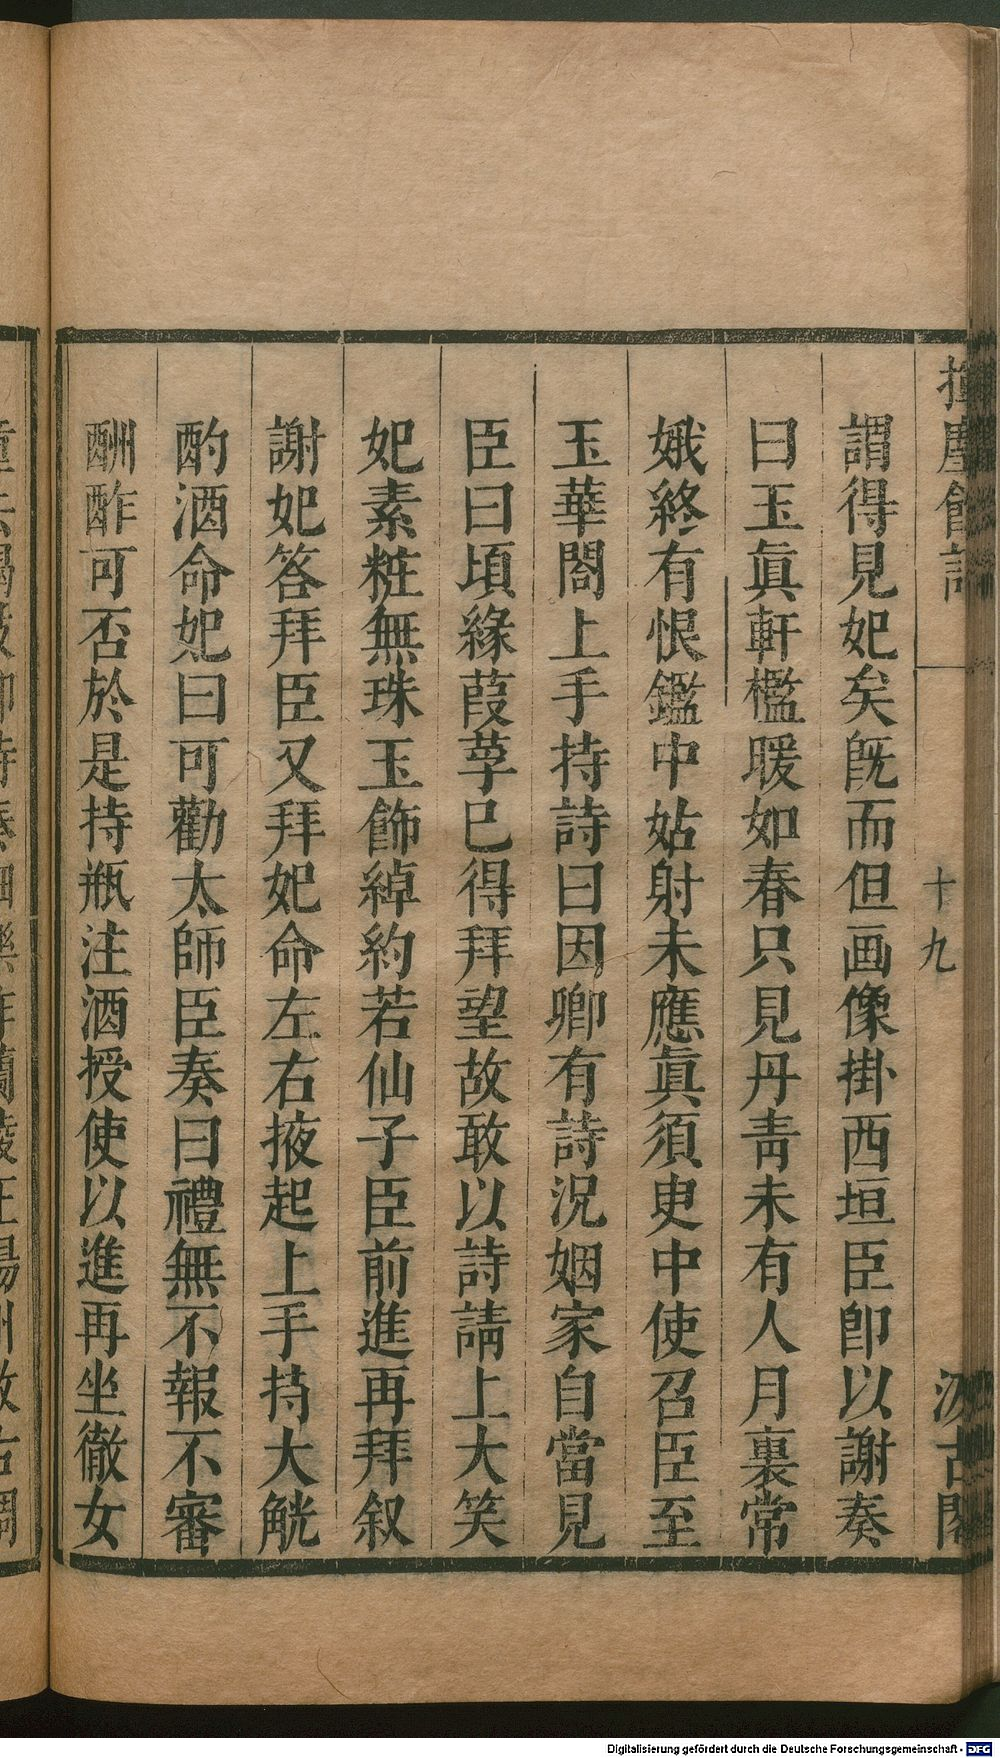 揮麈餘話
十九
汲古閣
謂得見妃矣旣而但画像掛西垣臣卽以謝奏
曰玉眞軒檻暖如春只見丹靑未有人月裏常
娥終有恨鑑中姑射未應眞須臾中使召臣至
玉華閣上手持詩曰因卿有詩況姻家自當見
臣曰頃緣葭莩已得拜望故敢以詩請上大笑
妃素粧無珠玉飾綽約若仙子臣前進再拜叙
謝妃答拜臣又拜妃命左右掖起上手持大觥
酌酒命妃曰可勸太師臣奏曰禮無不報不審
酬酢可否於是持瓶注酒授使以進再坐徹女